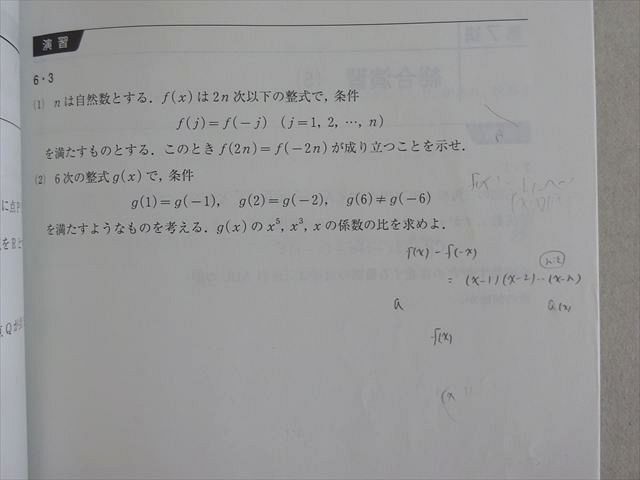 演習
6・3
(1) nは自然数とする．f(x) は 2n 次以下の整式で，条件
f(j)=f(−j) (j=1, 2, …, n)
を満たすものとする．このとき f(2n)=f(−2n) が成り立つことを示せ．
(2) 6次の整式 g(x) で，条件
g(1)=g(−1), g(2)=g(−2), g(6)≠g(−6)
を満たすようなものを考える．g(x) の x⁵, x³, x の係数の比を求めよ．
f(x) − f(−x)
= (x−1)(x−2)…(x−n)
Q(x)
f(x)